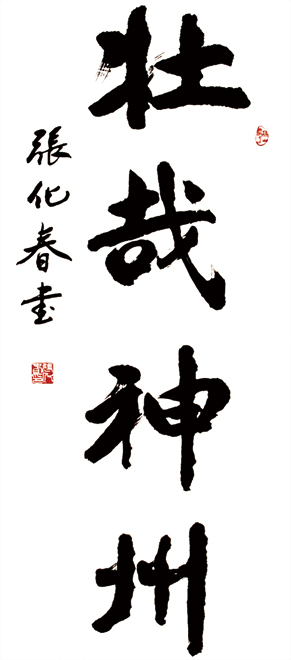 壮哉神州
張化春书